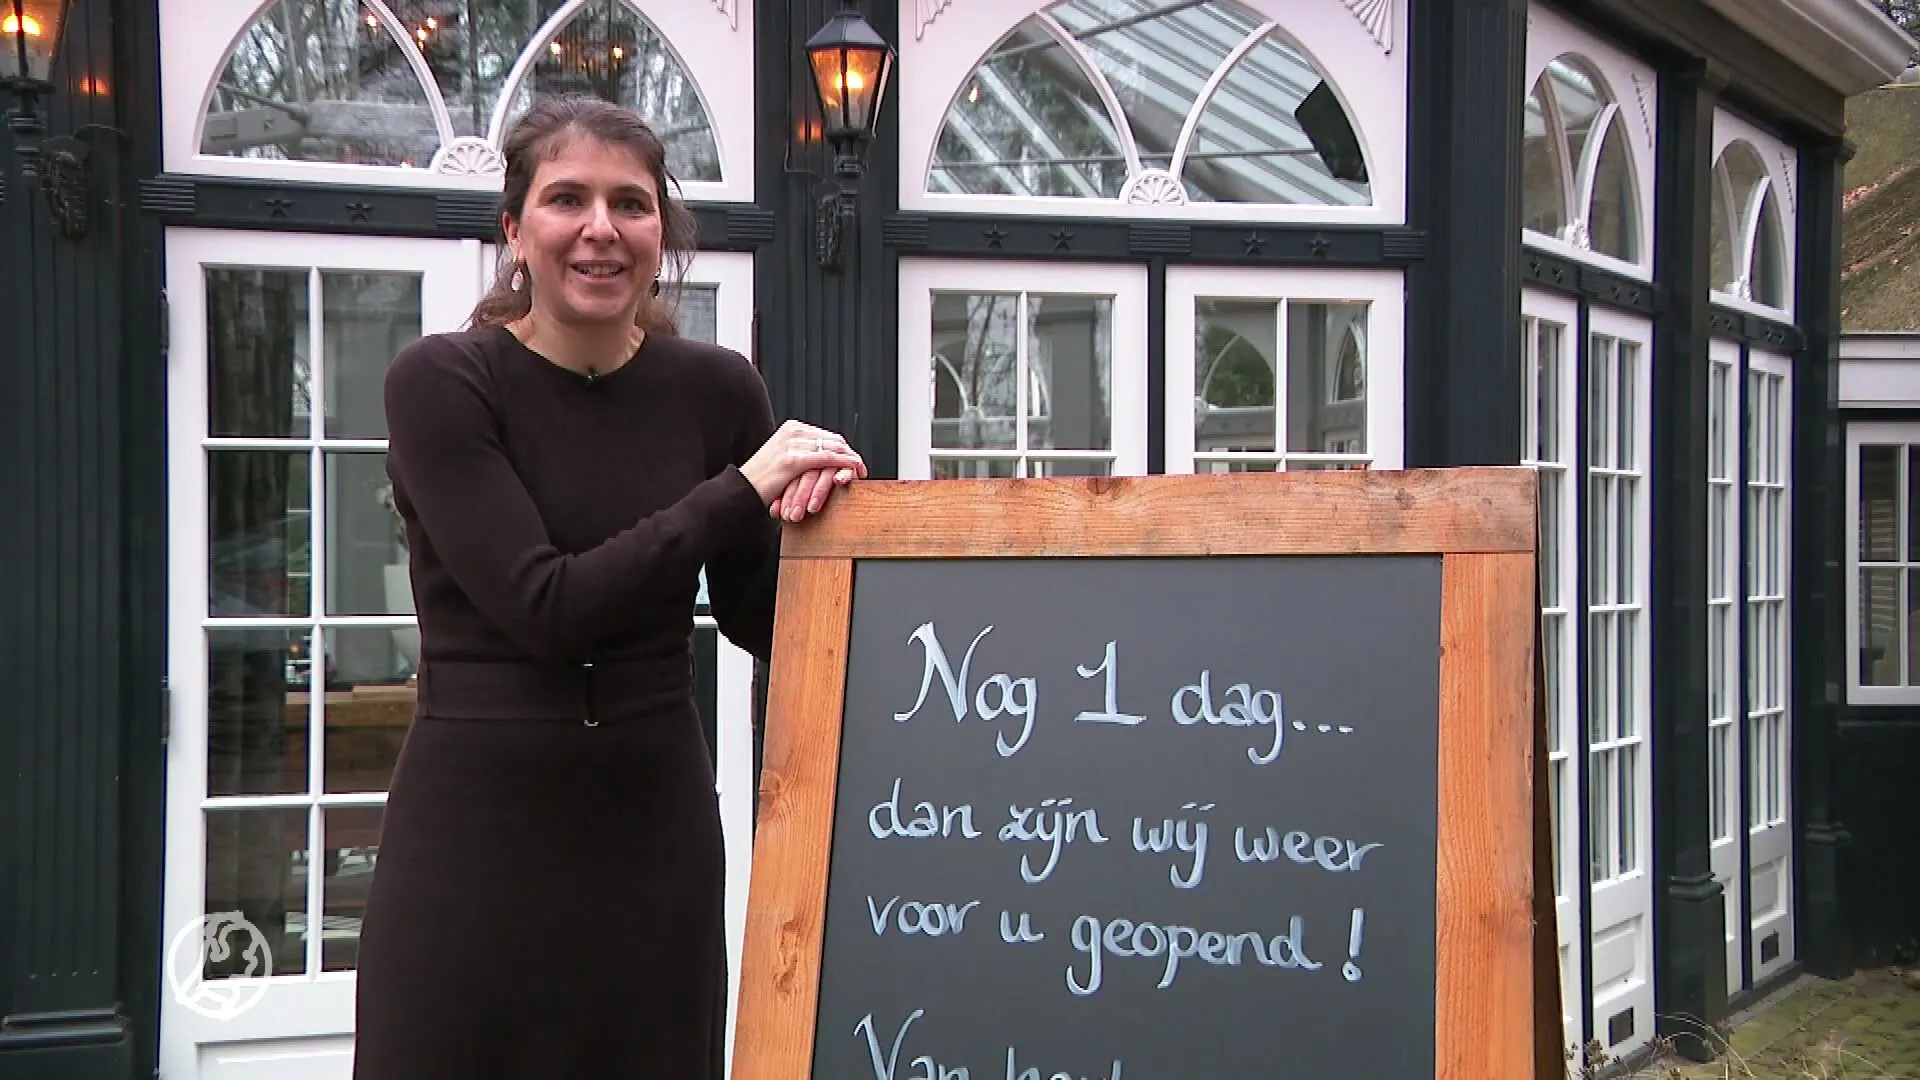 Nog 1 dag...
dan zijn wij weer
voor u geopend!
Van